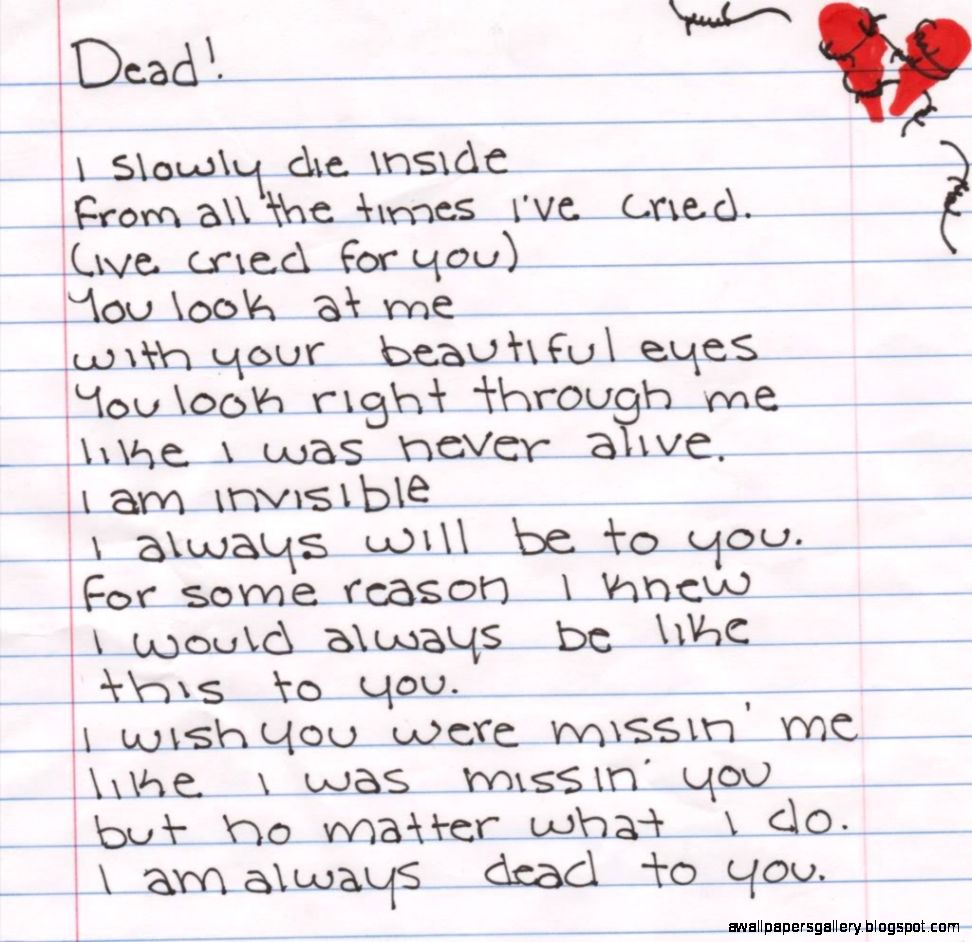 Dead!
I slowly die inside
From all the times I've cried.
(Ive cried for you)
You look at me
with your beautiful eyes
You look right through me
like I was never alive.
I am invisible
I always will be to you.
For some reason I knew
I would always be like
this to you.
I wish you were missin' me
like I was missin' you
but no matter what I do.
I am always dead to you.
awallpapersgallery.blogspot.com